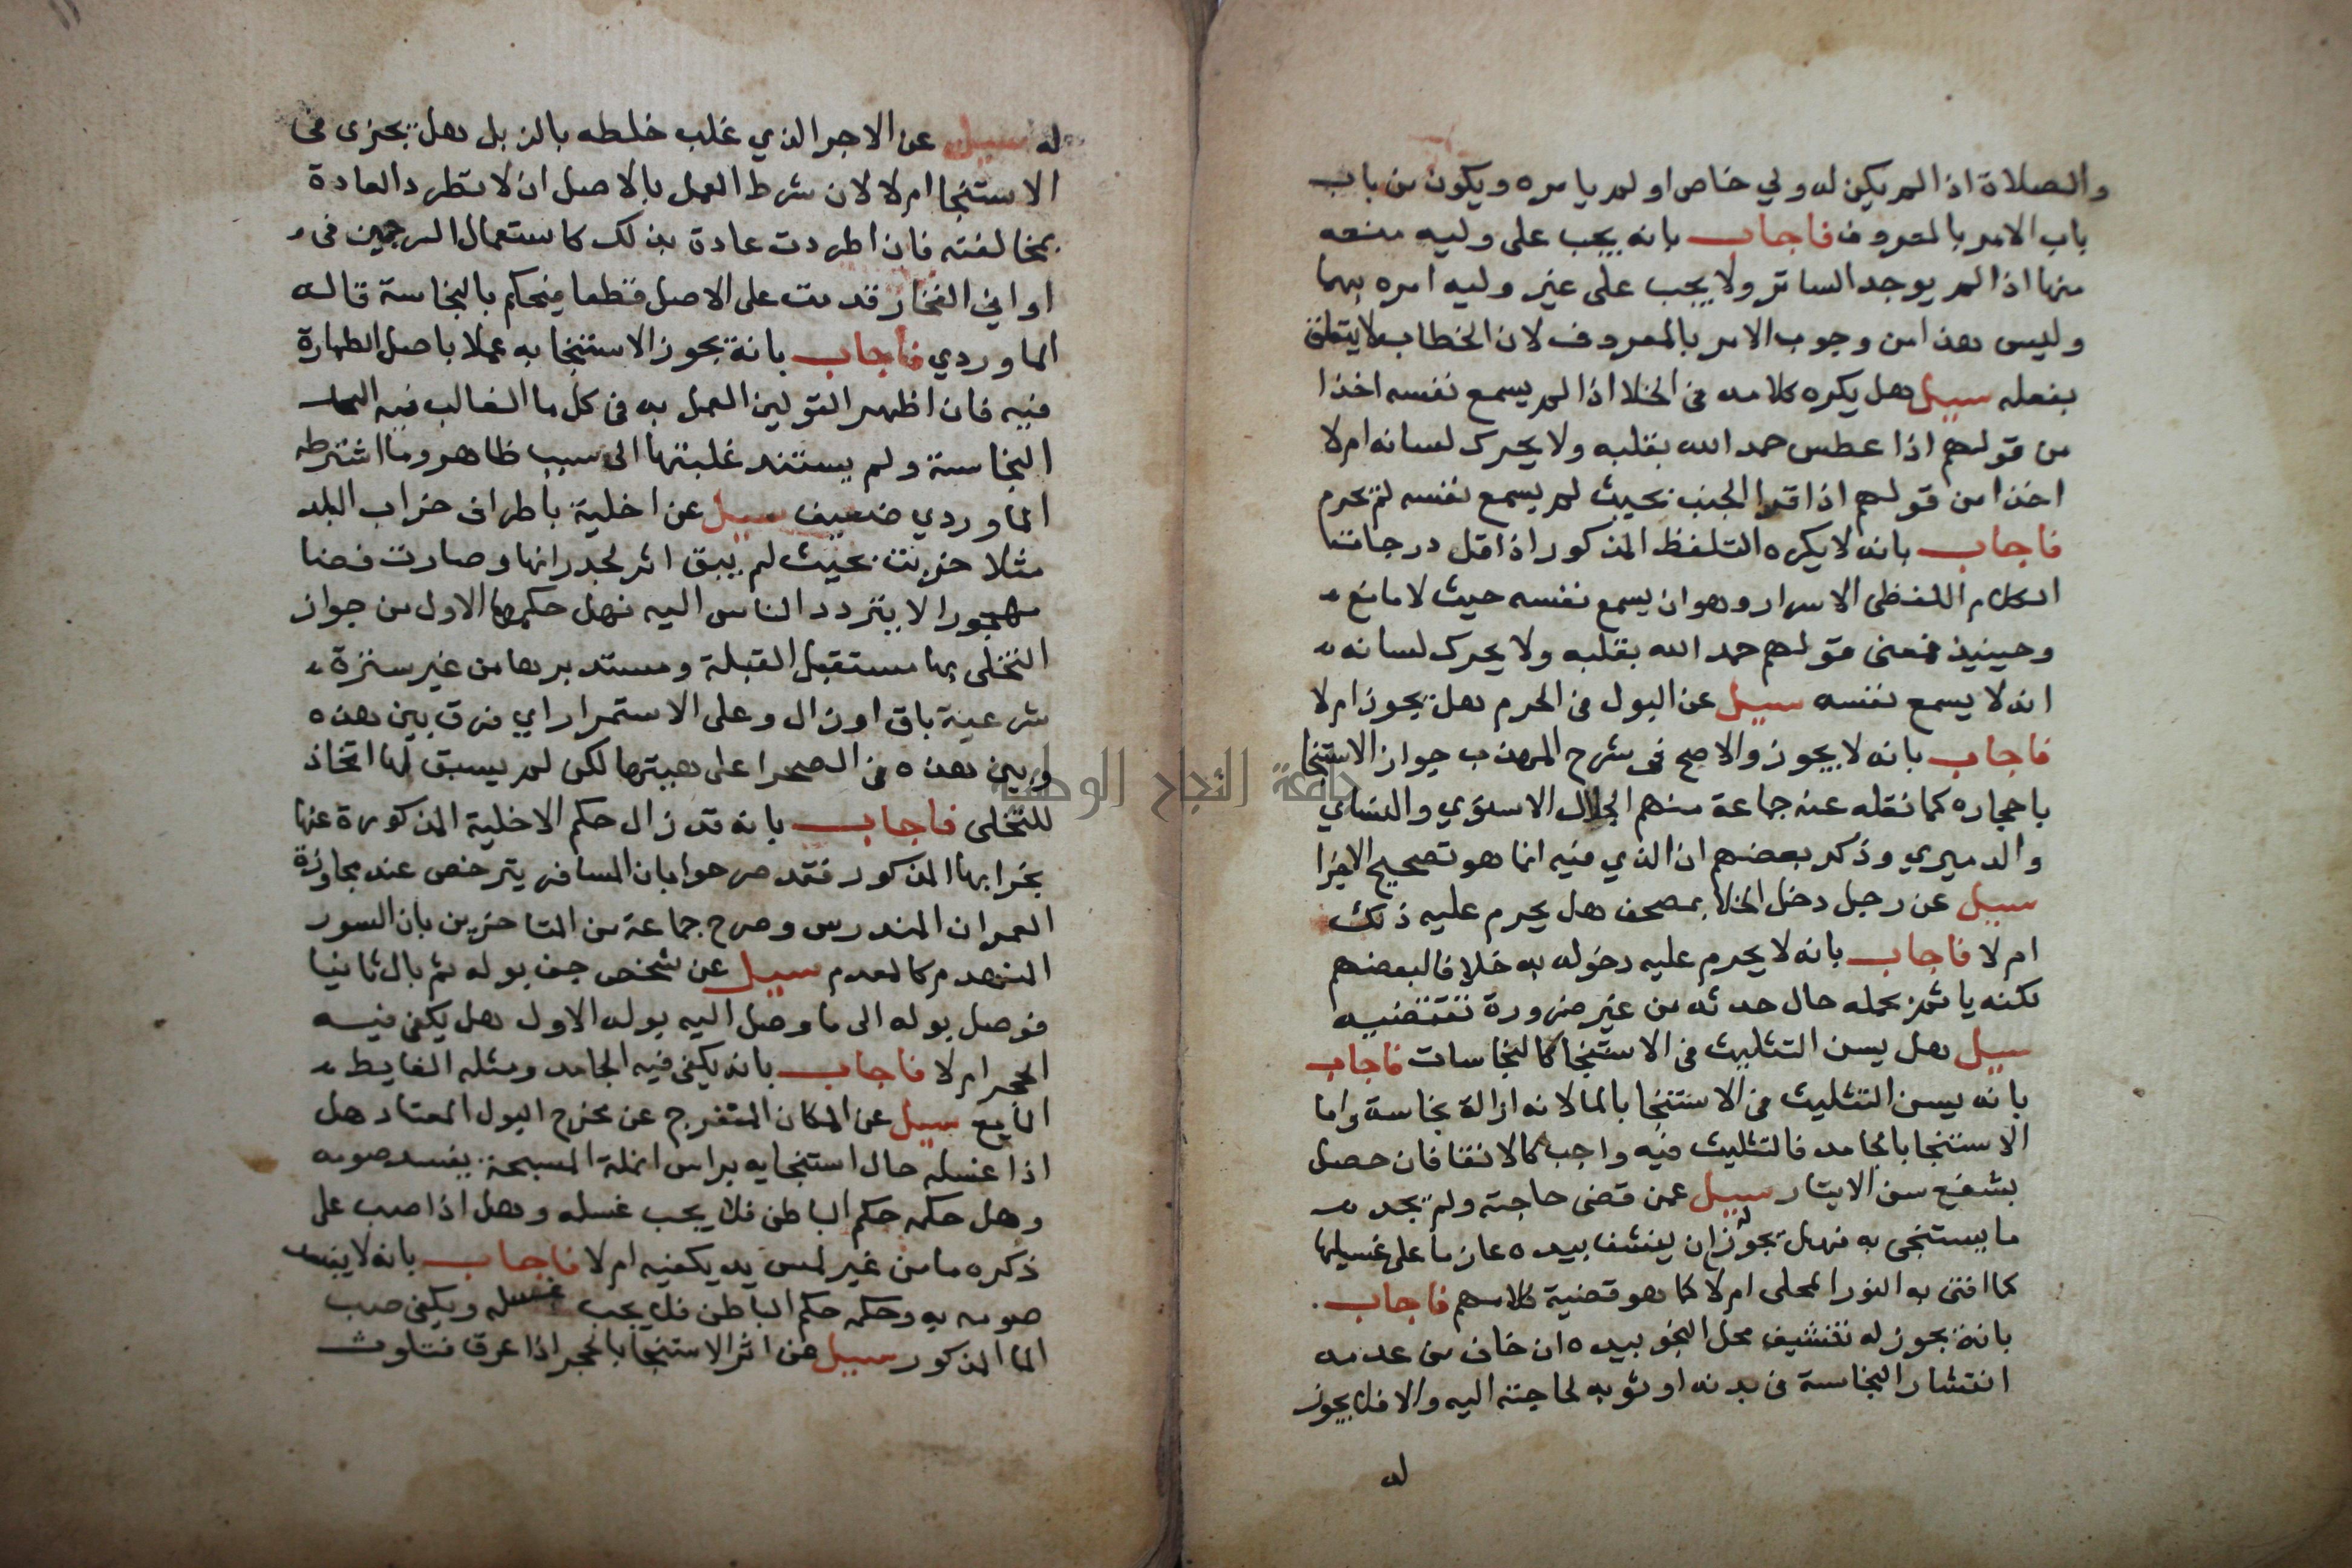 والصلاة اذا لم يكن له ولي خاص او لم يامره ويكون من باب
باب الامر بالمعروف فاجاب بانه يجب على وليه منعه
منها اذا لم يوجد الساتر ولا يجب على غير وليه امره بهما
وليس هذا من وجوب الامر بالمعروف لان الخطاب لا يتعلق
بفعله سيل هل يكره كلامه في الخلا اذا لم يسمع نفسه اخذا
من قولهم اذا عطس حمد الله بقلبه ولا يحرك لسانه ام لا
اخذا من قولهم اذا قرا الجنب بحيث لم يسمع نفسه لم يحرم
فاجاب بانه لا يكره التلفظ المذكور اذ اقل درجات
الكلام اللفظي الاسرار وهو ان يسمع نفسه حيث لا مانع
وحينيذ فمعنى قولهم حمد الله بقلبه ولا يحرك لسانه
انه لا يسمع نفسه سيل عن البول في الحرم هل يجوز ام لا
فاجاب بانه لا يجوز والاصح في شرح المهذب جواز الاستنجا
باحجاره كما نقله عنه جماعة منهم الجلال الاسنوي والنشاي
والدميري وذكر بعضهم ان الذي فيه انما هو تصحيح الاجزا
سيل عن رجل دخل الخلا بمصحف هل يحرم عليه ذلك
ام لا فاجاب بانه لا يحرم عليه دخوله به خلافا لبعضهم
لكنه ياثم بحمله حال حدثه من غير ضرورة تقتضيه
سيل هل يسن التثليث في الاستنجا كالنجاسات فاجاب
بانه يسن التثليث في الاستنجا بالما لانه ازالة نجاسة واما
الاستنجا بالجامد فالتثليث فيه واجب كالانقا فان حصل
بشفع سن الايتار سيل عمن قضى حاجته ولم يجد
ما يستنجي به فهل يجوز له ان ينشف بيده عازما على غسلها
كما افتى به النور المحلى ام لا كما هو قضية كلامهم فاجاب
بانه يجوز له تنشيف محل النجو بيده ان خاف من عدمه
انتشار النجاسة في بدنه او ثوبه لحاجته اليه والا فلا يجوز
له
له سيل عن الاجر الذي غلب خلطه بالزبل هل يجزى في
الاستنجا ام لا لان شرط العمل بالاصل ان لا تطرد العادة
بمخالفته فان اطردت عادة بذلك كاستعمال السرجين في
اواني الفخار قدمت على الاصل قطعا فيحكم بالنجاسة قاله
الماوردي فاجاب بانه يجوز الاستنجا به عملا باصل الطهارة
فيه فان اظهر القولين العمل به في كل ما الغالب فيه
النجاسة ولم يستند غلبتها الى سبب ظاهر وما اشترطه
الماوردي ضعيف سيل عن اخلية باطراف خراب البلد
مثلا خربت بحيث لم يبق اثر لجدرانها وصارت فضا
مهجورا لا يتردد الناس اليه فهل حكمها الاول من جواز
التخلى بها مستقبل القبلة ومستدبرها من غير سترة
شرعية باق او زال وعلى الاستمرار اي فرق بين هذه
وبين هذه في الصحرا على هيئتها لكن لم يسبق لها اتخاذ
للتخلى فاجاب بانه قد زال حكم الاخلية المذكورة عنها
بخرابها المذكور فقد صرحوا بان المسافر يترخص عند مجاوزة
العمران المندرس وصرح جماعة من المتاخرين بان السور
المنهدم كالعدم سيل عن شخص جف بوله ثم بال ثانيا
فوصل بوله الى ما وصل اليه بوله الاول هل يكفي فيه
الحجر ام لا فاجاب بانه يكفي فيه الجامد ومثله الغايط
المايع سيل عن المكان المتفرج عن مخرج البول المعتاد هل
اذا غسله حال استنجايه براس انملة المسبحة يفسد صومه
وهل حكمه حكم الباطن فلا يجب غسله وهل اذا صب على
ذكره ما من غير لمس يد يكفيه ام لا فاجاب بانه لا يفسد
صومه به وحكمه حكم الباطن فلا يجب غسله ويكفي صب
الما المذكور سيل عن اثر الاستنجا بالحجر اذا عرق فتلوث
جامعة النجاح الوطنية